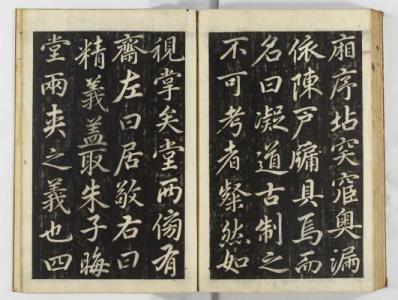 廂序坫突宧奧漏
依陳戶牖具焉而
名曰凝道古制之
不可考者粲然如
視掌矣堂兩傍有
齋左曰居敬右曰
精義盖取朱子晦
堂兩夾之義也四